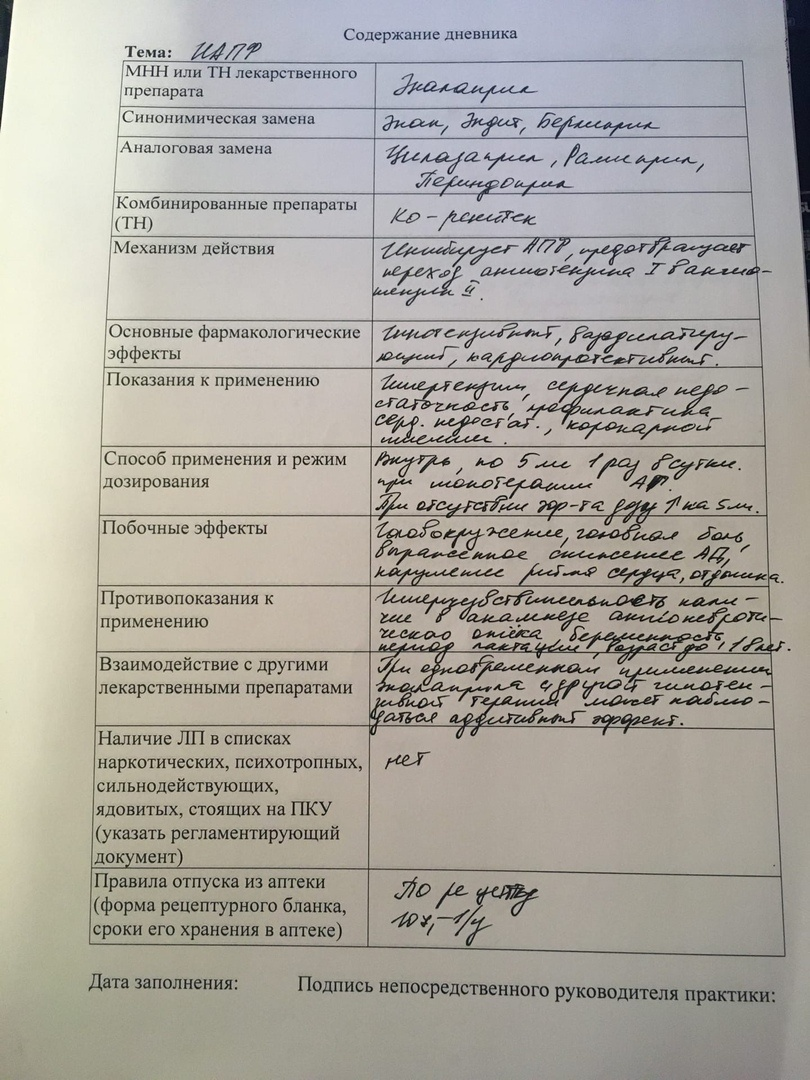 Содержание дневника
Тема: ИАПФ
МНН или ТН лекарственного
препарата
Эналаприл
Синонимическая замена
Энап, Эднит, Берлиприл
Аналоговая замена
Цилазаприл, Рамиприл,
Периндоприл
Комбинированные препараты
(ТН)
Ко-ренитек
Механизм действия
Ингибирует АПФ, предотвращает
переход ангиотензина I в ангио-
тензин II.
Основные фармакологические
эффекты
Гипотензивный, вазодилатиру-
ющий, кардиопротективный.
Показания к применению
Гипертензии, сердечная недо-
статочность, профилактика
серд. недостат., коронарной
ишемии.
Способ применения и режим
дозирования
Внутрь, по 5 мг 1 раз в сутки.
при монотерапии АГ.
При отсутствии эф-та дозу ↑ на 5 мг.
Побочные эффекты
Головокружение, головная боль,
выраженное снижение АД,
нарушение ритма сердца, отдышка.
Противопоказания к
применению
Гиперчувствительность нали-
чие в анамнезе ангионевроти-
ческого отёка беременность,
период лактации, возраст до 18 лет.
Взаимодействие с другими
лекарственными препаратами
При одновременном применении
эналаприла и другой гипотен-
зивной терапии может наблю-
даться аддитивный эффект.
Наличие ЛП в списках
наркотических, психотропных,
сильнодействующих,
ядовитых, стоящих на ПКУ
(указать регламентирующий
документ)
нет
Правила отпуска из аптеки
(форма рецептурного бланка,
сроки его хранения в аптеке)
По рецепту
107-1/у
Дата заполнения: Подпись непосредственного руководителя практики: